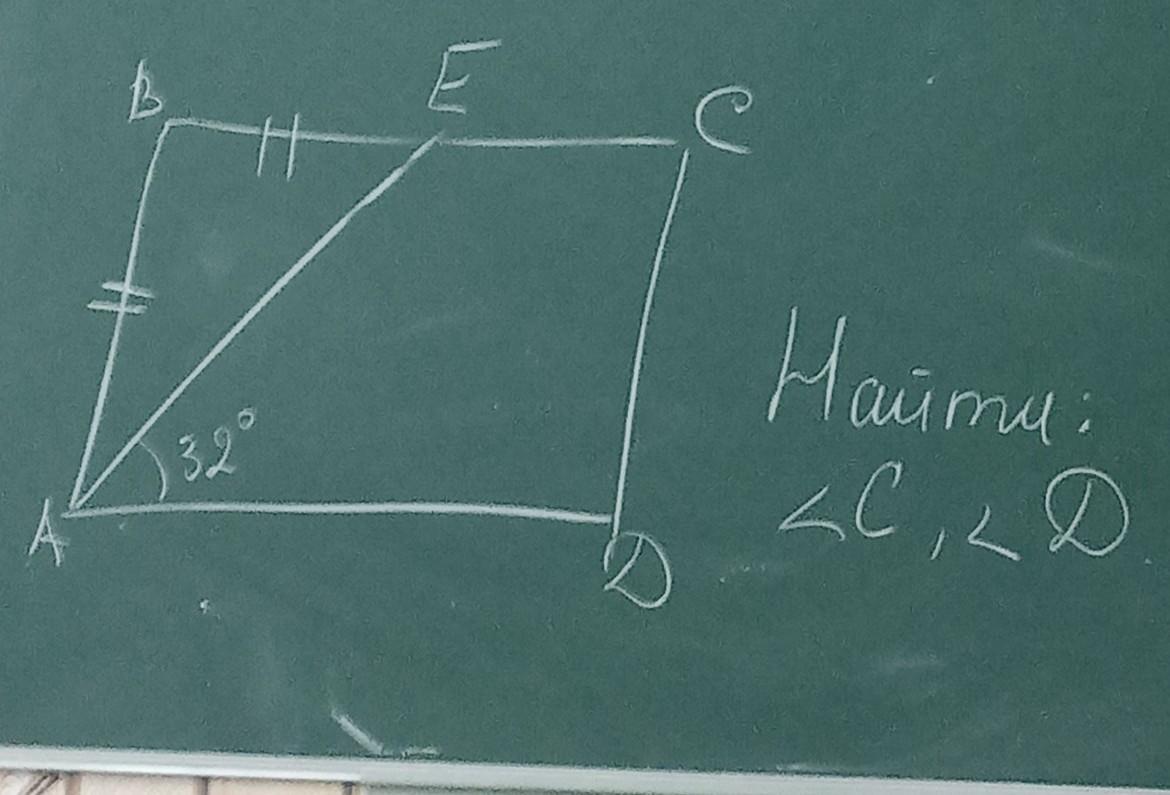 B E C
32°
A D
Найти:
<C, <D